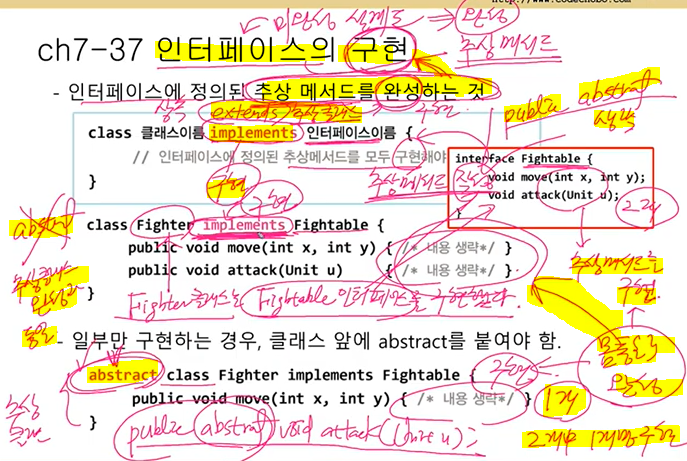 http://www.codechobo.com
미완성 설계도 => 완성
ch7-37 인터페이스의 구현
추상메서드
- 인터페이스에 정의된 추상 메서드를 완성하는 것
상속 extends 추상클래스 구현
public abstract
생략
class 클래스이름 implements 인터페이스이름 {
// 인터페이스에 정의된 추상메서드를 모두 구현해야
}
구현
추상메서드
interface Fightable {
void move(int x, int y);
void attack(Unit u);
}
2개
구현
abstract
class Fighter implements Fightable {
public void move(int x, int y) { /* 내용 생략*/ }
public void attack(Unit u) { /* 내용 생략*/ }
}
추상클래스
완성과
동일
Fighter클래스는 Fightable 인터페이스를 구현했다.
추상메서드를
구현
- 일부만 구현하는 경우, 클래스 앞에 abstract를 붙여야 함.
몸통으로
완성
abstract class Fighter implements Fightable {
구현
public void move(int x, int y) { /* 내용 생략*/ }
1개
}
추상
public abstract void attack(Unit u);
2개中 1개만 구현